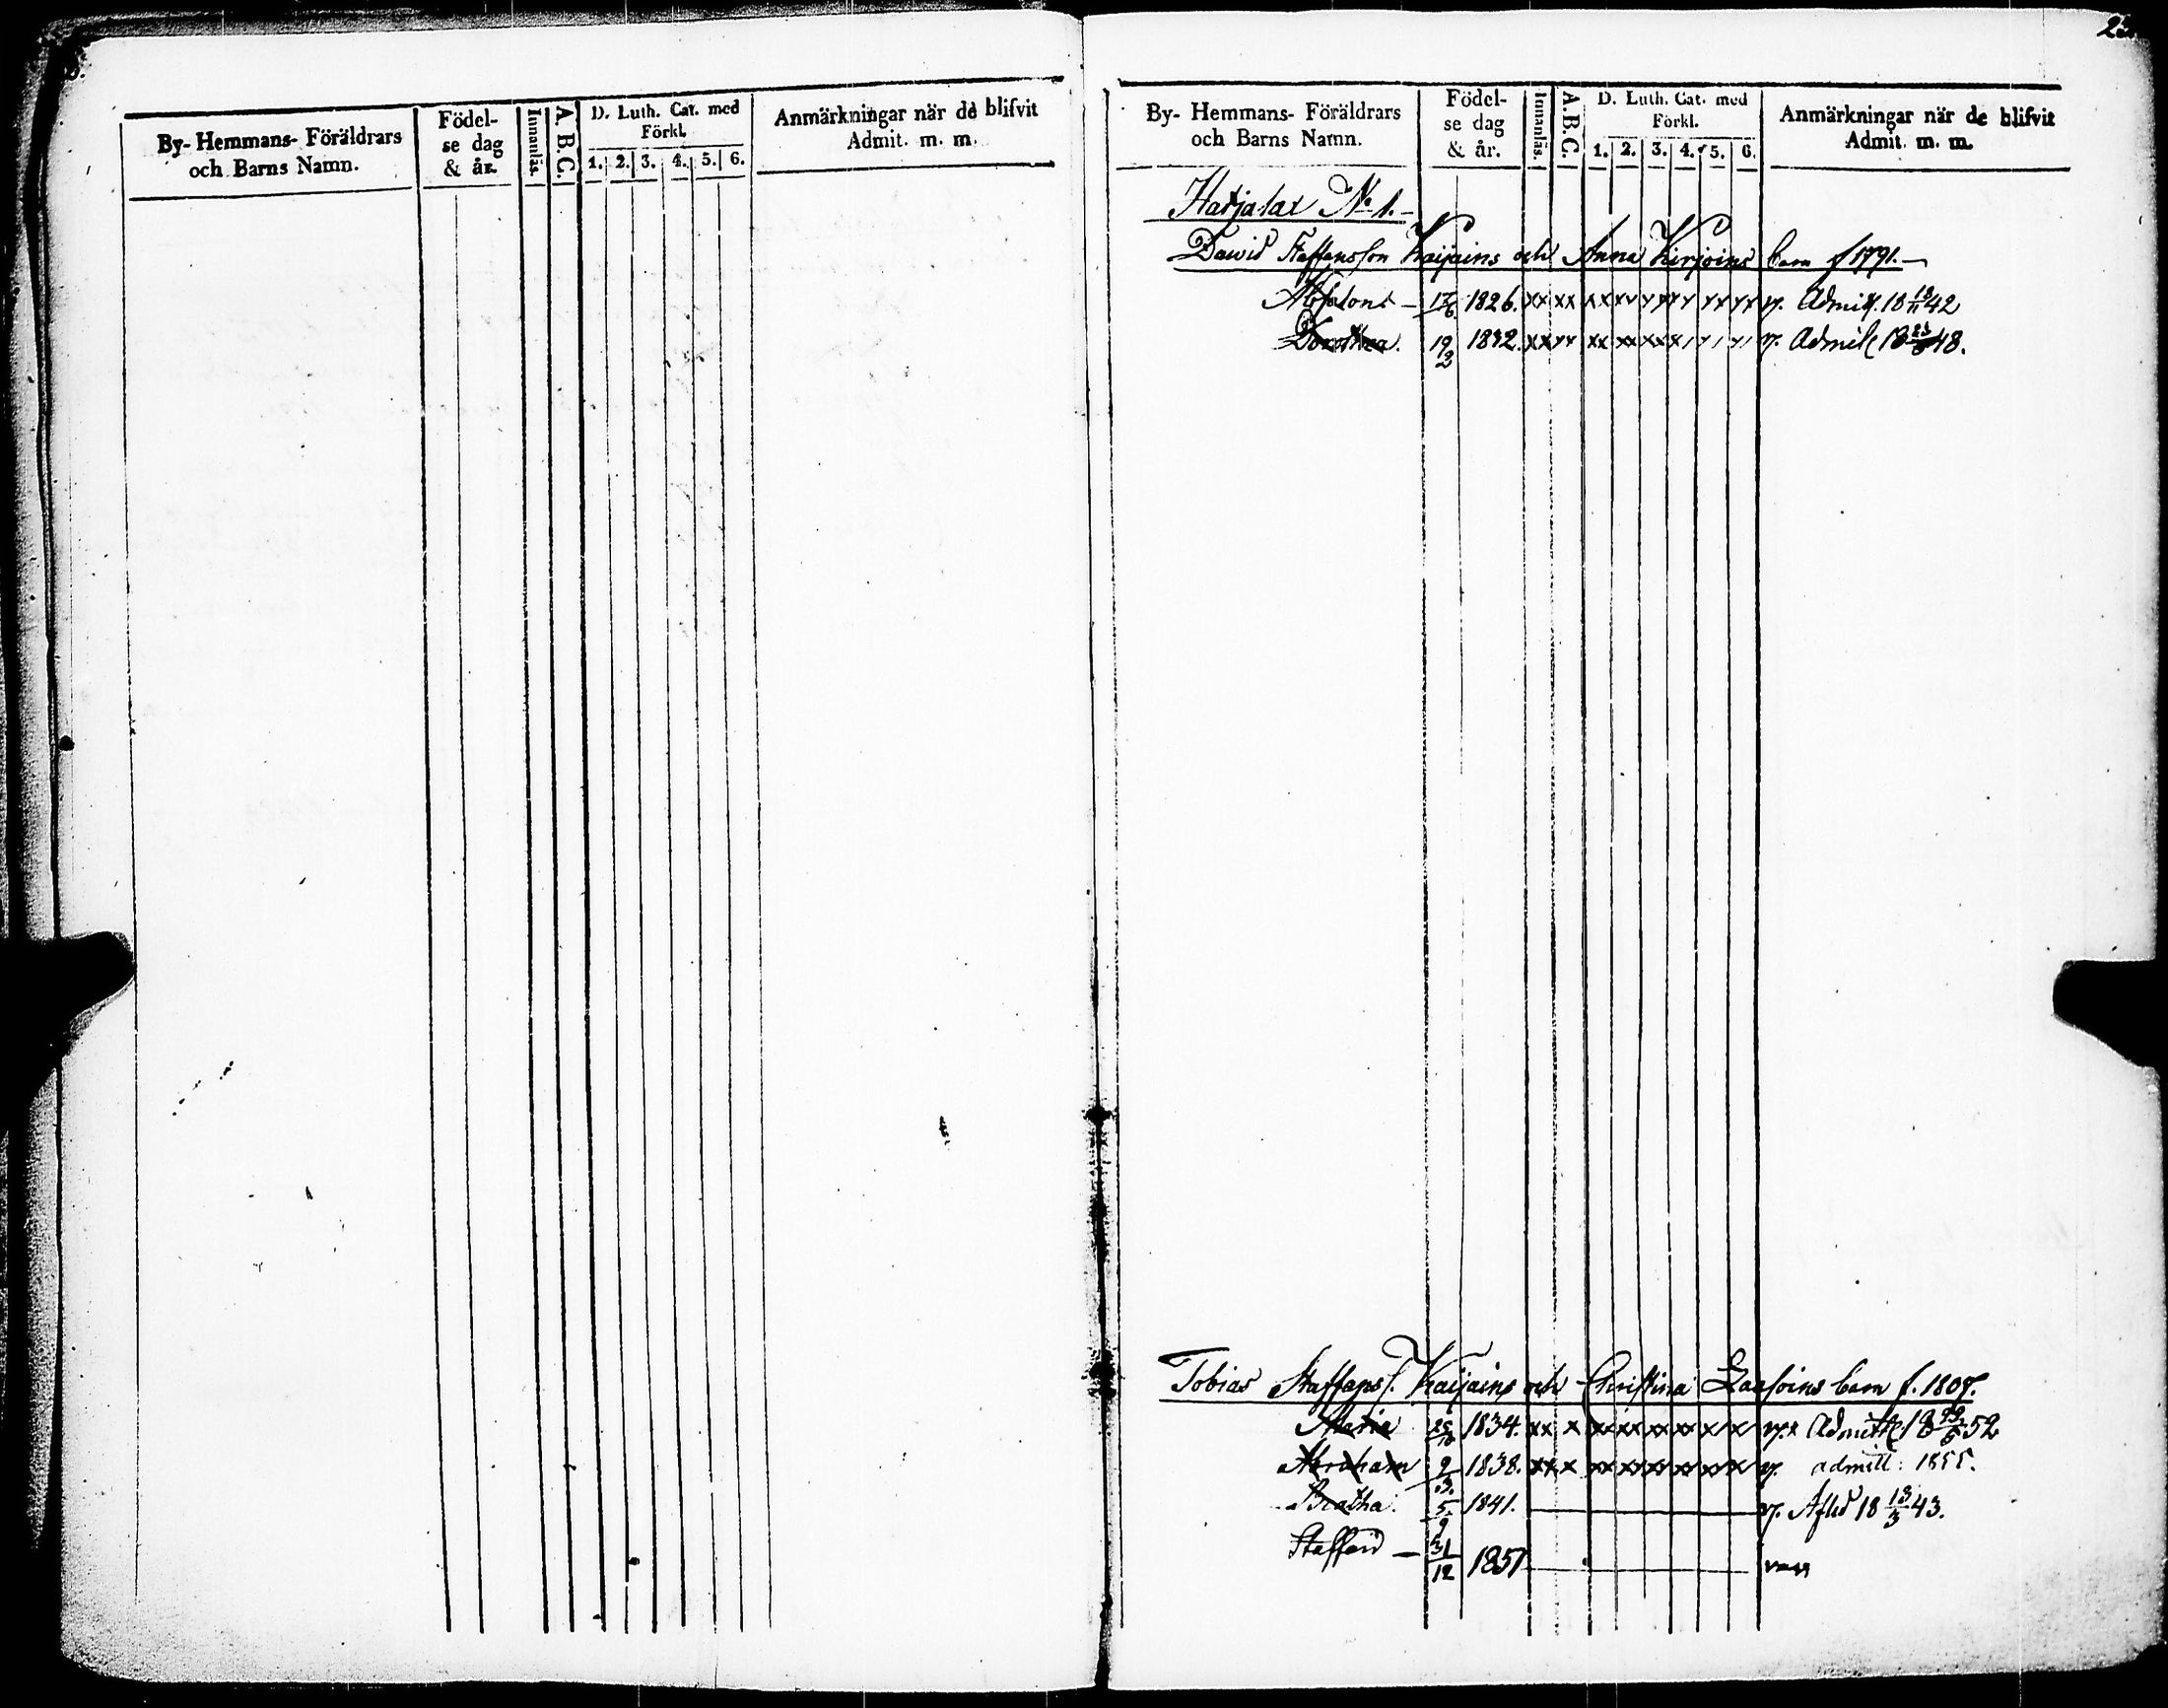 By- Hemmans- Föräldrars
och Barns Namn.
Födel-
se dag
& år.
Innanläs.
A B C.
D. Luth. Cat. med
Förkl.
1. 2. 3. 4. 5. 6.
Anmärkningar när de blifvit
Admit. m. m.
By- Hemmans- Föräldrars
och Barns Namn.
Födel-
se dag
& år.
Innanläs.
A B C.
D. Luth. Cat. med
Förkl.
1. 2. 3. 4. 5. 6.
Anmärkningar när de blifvit
Admit. m. m.
Harjalax No 1.
Dawid Staffansson Kaijains och Anna Kirjoins barn f 1791.
Absalons 17/6 1826. v. Admitt. 18 18/11 42
Dorothea. 19/2 1832. v. Admitt 18 48.
Tobias Staffanss. Kaijains och Christina Laasoins barn f. 1807.
Maria 25/10 1834. v. Admitt 18 52
Abraham 2/3. 1838. v. admitt: 1855.
Beatha. 5/9 1841. v. Afled 18 13/3 43.
Staffan 31/12 1851 vacc